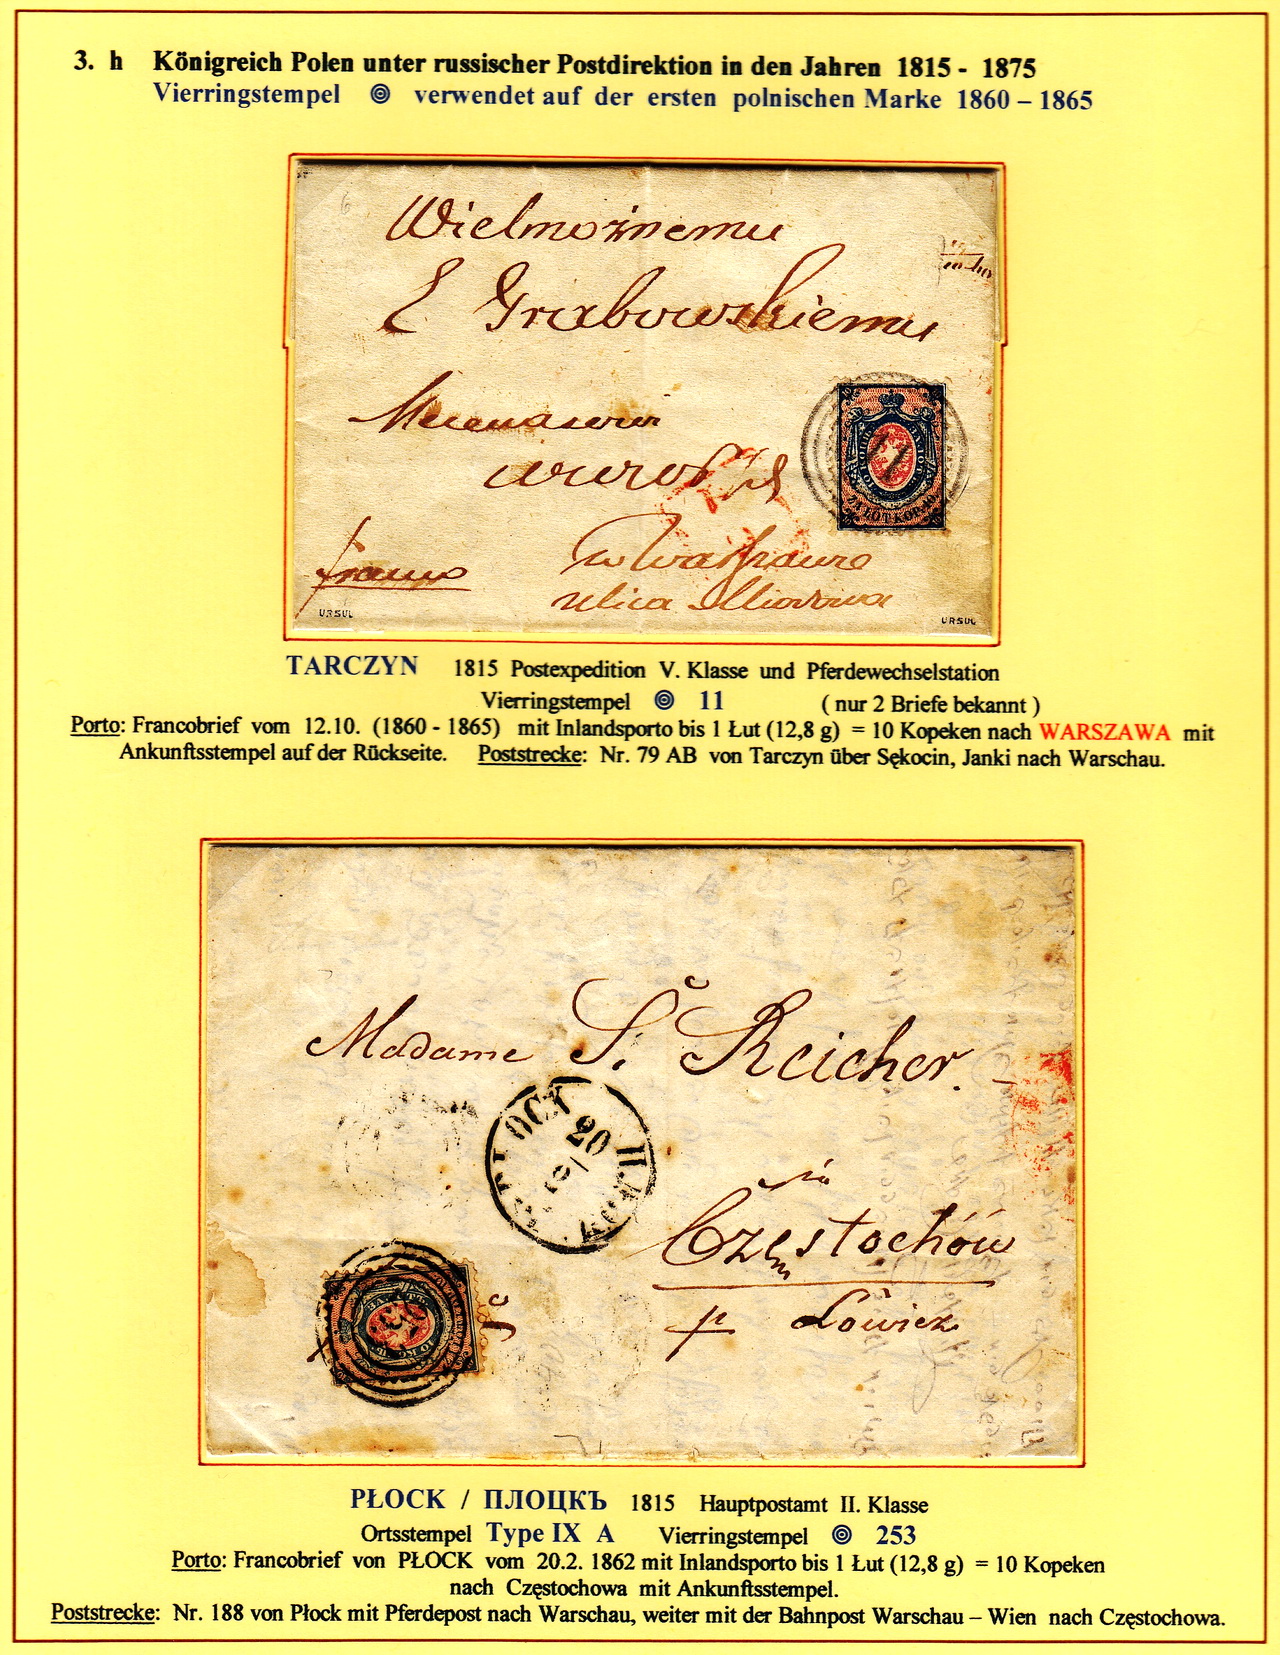 3. h Königreich Polen unter russischer Postdirektion in den Jahren 1815 - 1875
Vierringstempel verwendet auf der ersten polnischen Marke 1860 – 1865
6
Wielmożnemu
E Grabowskiemu
Mecenasowi
w Warszawie
ulica Miodowa
franco
URSUL
URSUL
11
TARCZYN 1815 Postexpedition V. Klasse und Pferdewechselstation
Vierringstempel 11 ( nur 2 Briefe bekannt )
Porto: Francobrief vom 12.10. (1860 - 1865) mit Inlandsporto bis 1 Łut (12,8 g) = 10 Kopeken nach WARSZAWA mit
Ankunftsstempel auf der Rückseite. Poststrecke: Nr. 79 AB von Tarczyn über Sękocin, Janki nach Warschau.
Madame S. Reicher.
PŁOCK
20
in
Częstochów
p Łowicz
253
PŁOCK / ПЛОЦКЪ 1815 Hauptpostamt II. Klasse
Ortsstempel Type IX A Vierringstempel 253
Porto: Francobrief von PŁOCK vom 20.2. 1862 mit Inlandsporto bis 1 Łut (12,8 g) = 10 Kopeken
nach Częstochowa mit Ankunftsstempel.
Poststrecke: Nr. 188 von Płock mit Pferdepost nach Warschau, weiter mit der Bahnpost Warschau – Wien nach Częstochowa.